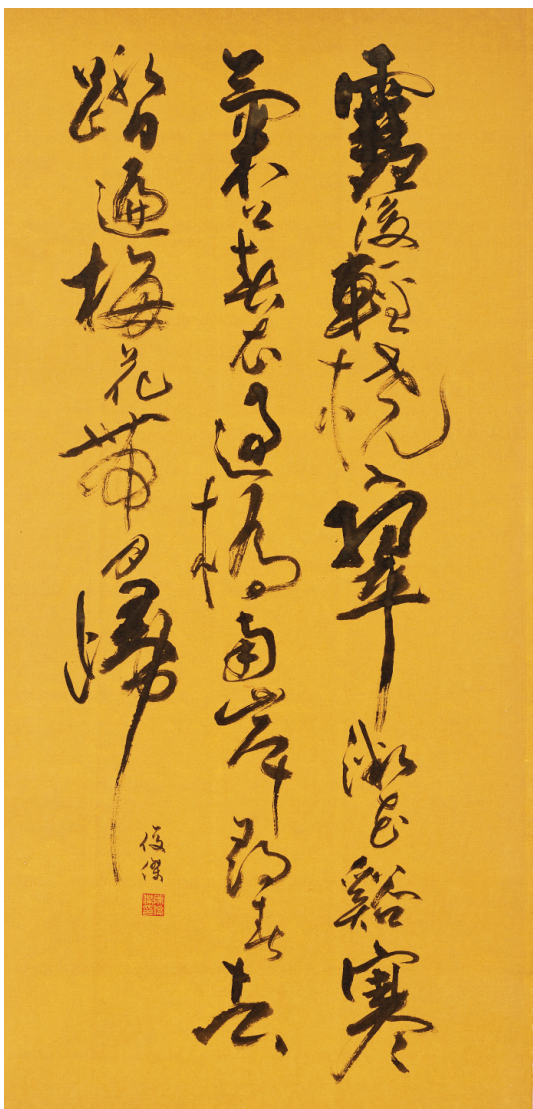 雪後輕橈入翠微花谿寒
氣上春衣過橋南岸尋春去
踏遍梅花帶月歸
俊傑